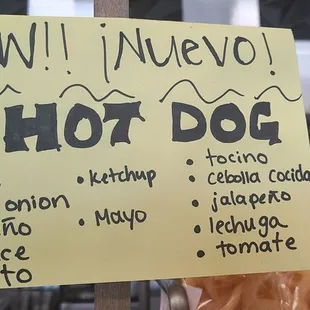 W!! ¡NUEVO!
HOT DOG
• ketchup
• Mayo
onion
ño
ce
to
• tocino
• cebolla cocida
• jalapeño
• lechuga
• tomate